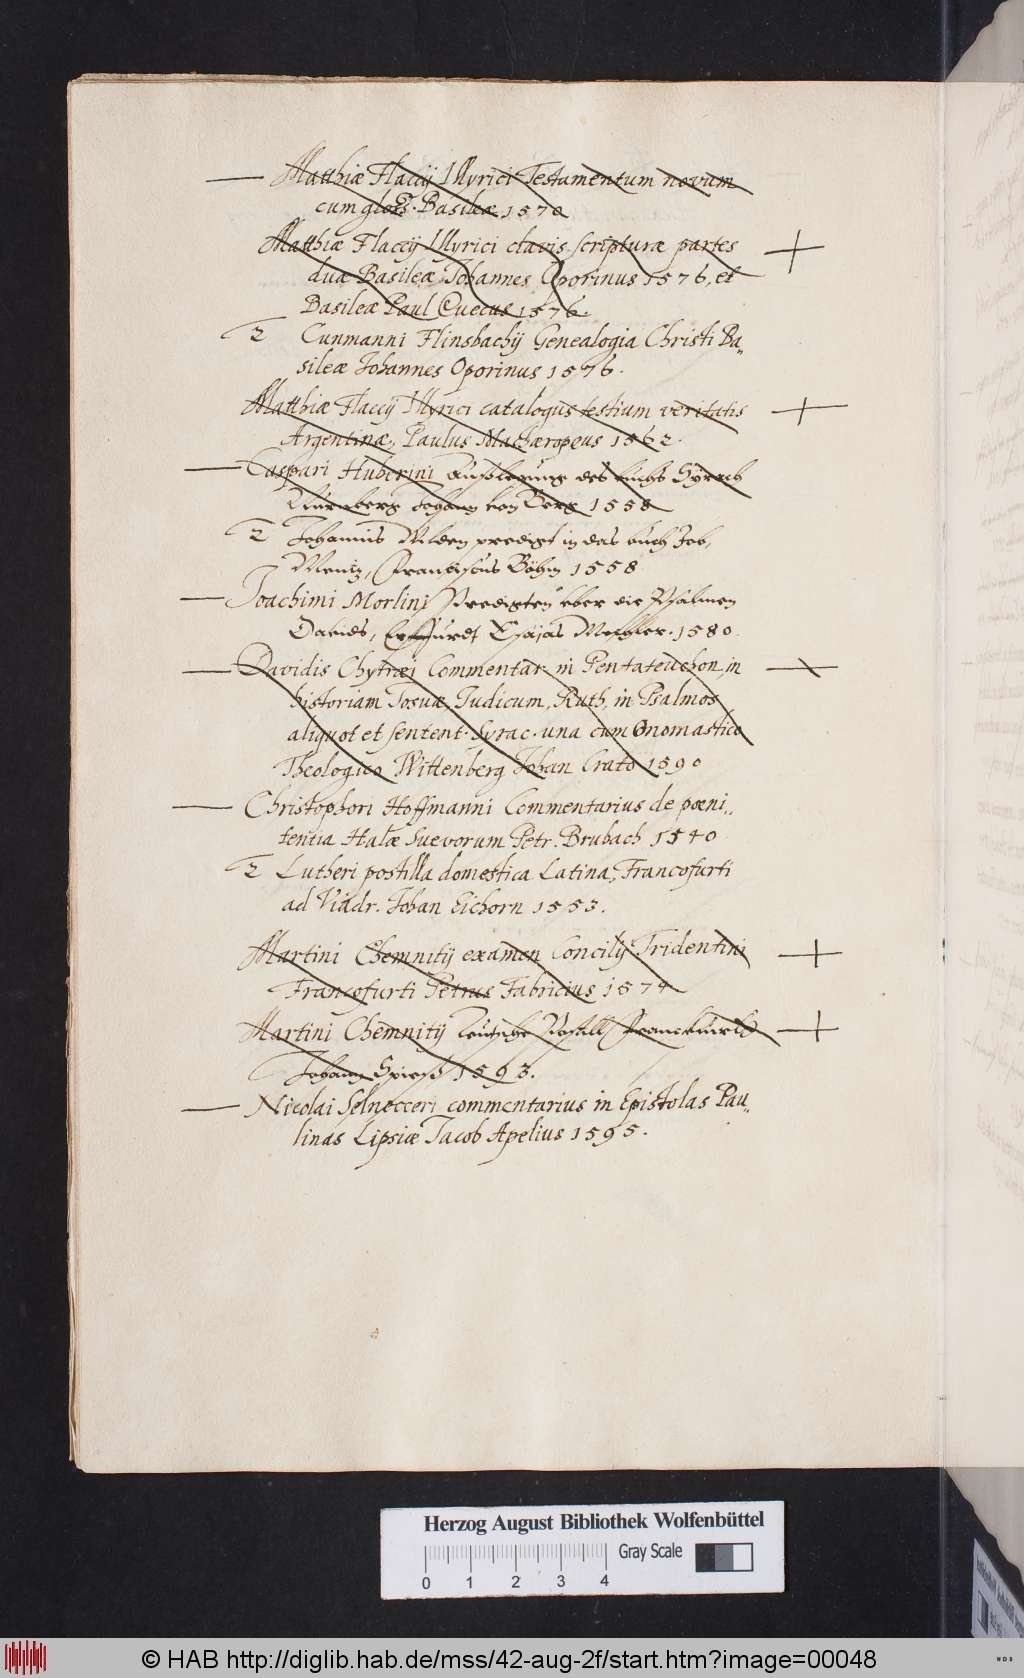 Matthiæ Flaccij Illyrici Testamentum novum
cum gloss. Basileæ 1570
Matthiæ Flaccij Illyrici clavis scripturæ partes
duæ Basileæ Johannes Oporinus 1576, et
Basileæ Paul Quecus 1576.
Cunmanni Flinsbachij Genealogia Christi Ba„
sileæ Johannes Oporinus 1576.
Matthiæ Flaccij Illyrici catalogus testium veritatis
Argentinæ, Paulus Machæropeus 1562.
Caspari Huberini Außlegung des buchs Syrach
Nürnberg Johann von Berg 1558
Johannis Wilden predigt in das buch Job,
Mentz, Franciscus Böhm 1558
Joachimi Morlini Predigten vber die Psalmen
Davids, Erffurdt Esajas Mechler. 1580.
Davidis Chytræi Commentar. in Pentateuchon, in
historiam Josuæ, Judicum, Ruth, in Psalmos
aliquot et sentent. Syrac. una cum Onomastico
Theologico Wittenberg Johan Crato 1590
Christophori Hoffmanni Commentarius de pœni„
tentia Halæ Suevorum Petr. Brubach 1540
Lutheri postilla domestica Latina, Francofurti
ad Viadr. Johan Eichorn 1553.
Martini Chemnitij examen Concilij Tridentini
Francofurti Petrus Fabricius 1574
Martini Chemnitij Teutsche Postill Franckfurth
Johann Spieß 1593.
Nicolai Selnecceri commentarius in Epistolas Pau„
linas Lipsiæ Jacob Apelius 1595.
Herzog August Bibliothek Wolfenbüttel
Gray Scale
0 1 2 3 4
© HAB http://diglib.hab.de/mss/42-aug-2f/start.htm?image=00048